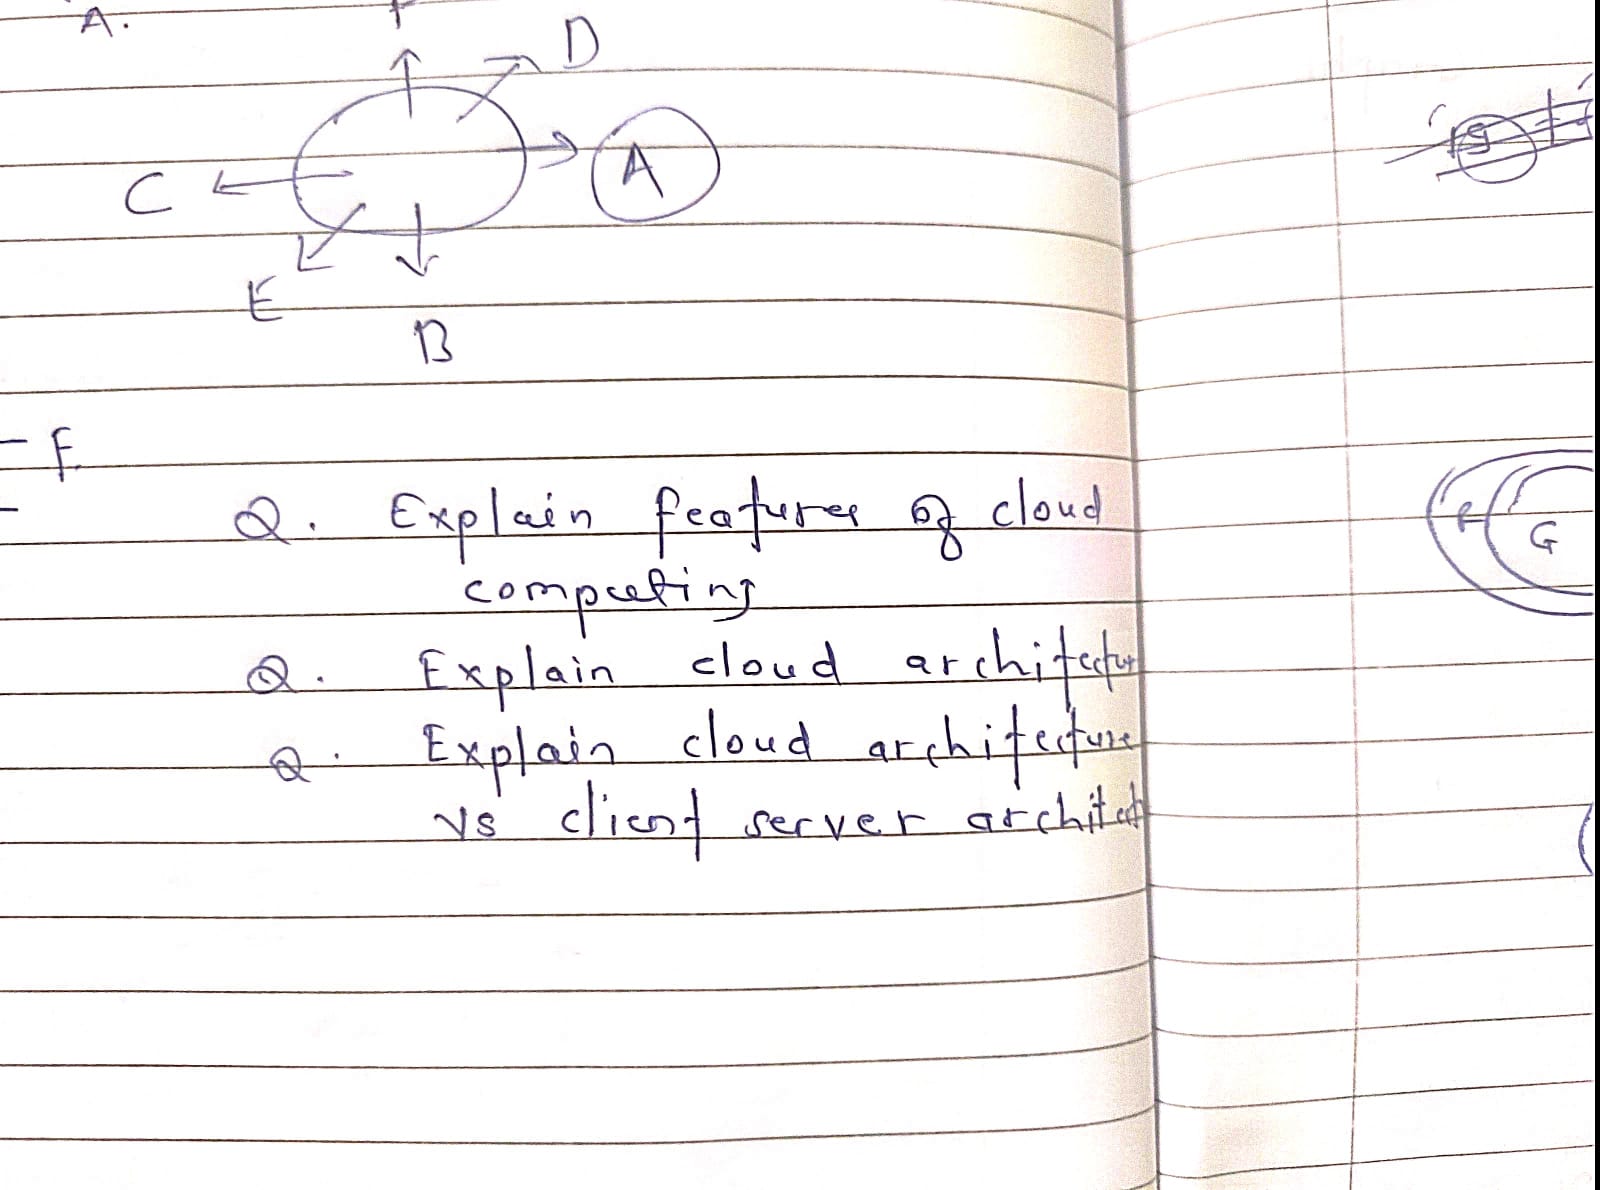 A.
D
A
C
E
B
F
Q. Explain features of cloud
computing
Q. Explain cloud architectur
Q. Explain cloud architecture
vs client server architect
G